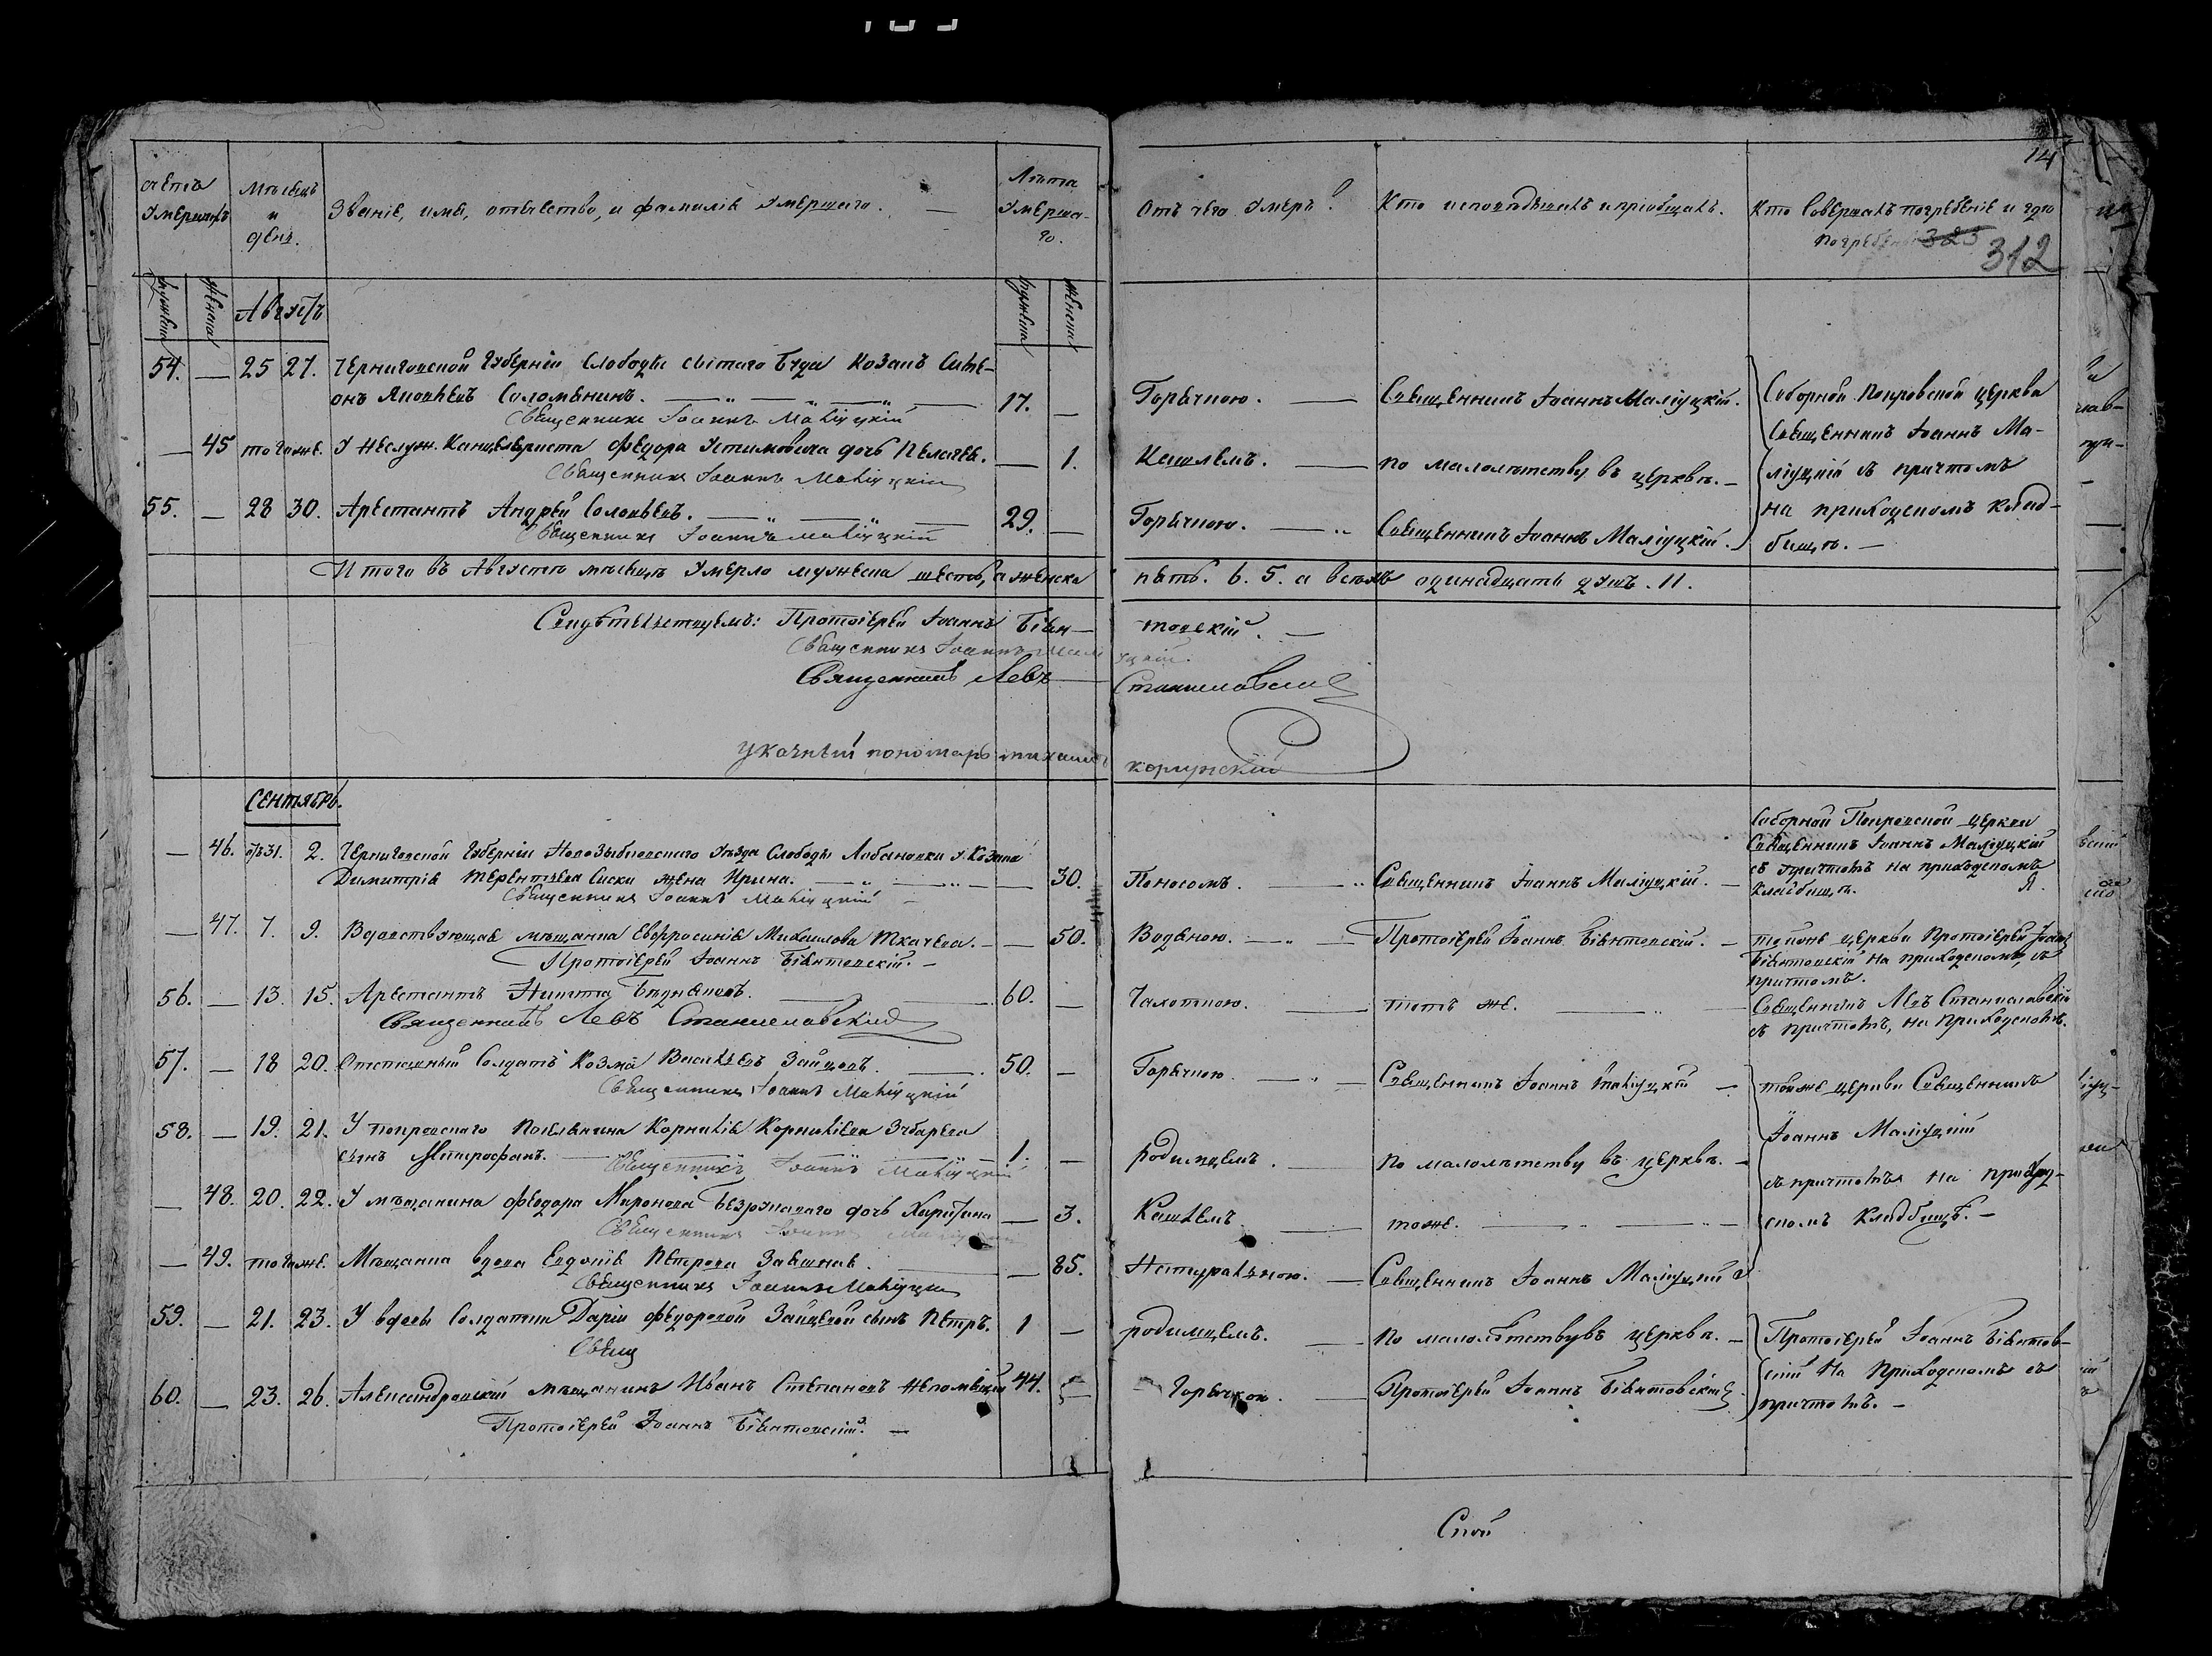 14
312
323
Счетъ умершихъ
Мѣсяцъ и день.
Званіе, имя, отчество, и фамилія умершаго. —
Лѣта умершаго.
Отъ чего умеръ?
Кто исповѣдывалъ и пріобщалъ.
Кто совершалъ погребеніе и гдѣ погребенъ
мужеска
женска
Августъ
мужеска
женска
54. — 25 27. Черниговской Губерніи Слободы святаго Козакъ Симе-
онъ Яковлевъ Соломянинъ. — 17. — Горячкою. — Священникъ Іоаннъ Маліуцкій.
Священникъ Іоаннъ Маліуцкій
— 45 того же. У неслуж. Канцеляриста Федора Устимовича дочь Пелагея. — 1. Кашлемъ. — По малолѣтству въ церквѣ. —
Священникъ Іоаннъ Маліуцкій
55. — 28 30. Арестантъ Андрей Соловьевъ. — 29. — Горячкою. — Священникъ Іоаннъ Маліуцкій.
Священникъ Іоаннъ Маліуцкій
Соборной Покровской церкви
Священникъ Іоаннъ Ма-
ліуцкій съ причтомъ
на приходскомъ клад-
бищѣ. —
Итого въ Августѣ мѣсяцѣ умерло мужеска шесть, а женска пять. 6. 5. а всѣхъ одинадцать душъ. 11.
Свидѣтельствуемъ: Протоіерей Іоаннъ Біян-товскій. —
Священникъ Іоаннъ Маліуцкій.
Священникъ Левъ Станиславскій
указный пономарь михаилъ
Сентябрь.
— 46. 31. 2. Черниговской Губерніи Новозыбковскаго Уѣзда Слободы Лобановки у Козака
Димитрія Терентіева жена Ирина. — 30. Поносомъ. — Священникъ Іоаннъ Маліуцкій. —
Священникъ Іоаннъ Маліуцкій
Соборной Покровской церкви
Священникъ Іоаннъ Маліуцкій
съ причтомъ на приходскомъ
кладбищѣ.
— 47. 7. 9. Вдовствующая мѣщанка Евфросинія Михаилова Ткачева. — 50. Водяною. — Протоіерей Іоаннъ Біянтовскій. — тойже церкви Протоіерей Іоаннъ
Біянтовскій на приходскомъ, съ
причтомъ.
Протоіерей Іоаннъ Біянтовскій. —
56. — 13. 15. Арестантъ Никита — 60. — Чахоткою. — тотъ же. — Священникъ Левъ Станиславскій
съ причтомъ, на приходскомъ.
Священникъ Левъ Станиславскій
57. — 18 20. Отставный Солдатъ Козма Васильевъ Зайцевъ. — 50. — Горячкою — Священникъ Іоаннъ Маліуцкій —
Священникъ Іоаннъ Маліуцкій
58. — 19. 21. У покровскаго поселянина Корнилія Корниліева Зубарева
сынъ Митрофанъ. — 1. — родимцемъ. — По малолѣтству въ церквѣ. —
Священникъ Іоаннъ Маліуцкій
— 48. 20. 22. У мѣщанина Феодора Миронова Безрукаваго дочь Харитина — 3. Кашлемъ — тоже. —
Священникъ Іоаннъ Маліуцкій
— 49. того же. Мѣщанка вдова Евдокія Петрова — 85. Натуральною. — Священникъ Іоаннъ Маліуцкій
Священникъ Іоаннъ Маліуцкій
тойже церкви Священникъ
Іоаннъ Маліуцкій
съ причтомъ на приход-
скомъ кладбищѣ. —
59. — 21. 23. У вдовы Солдатки Даріи Федоровой Зайцевой сынъ Петръ. 1 — родимцемъ. — По малолѣтству въ церквѣ. —
Свящ
60. — 23. 26. Александровскій мѣщанинъ Иванъ Степановъ 44. — Горячкою. — Протоіерей Іоаннъ Біянтовскій
Протоіерей Іоаннъ Біянтовскій. —
Протоіерей Іоаннъ Біянтов-
скій на приходскомъ съ
причтомъ. —